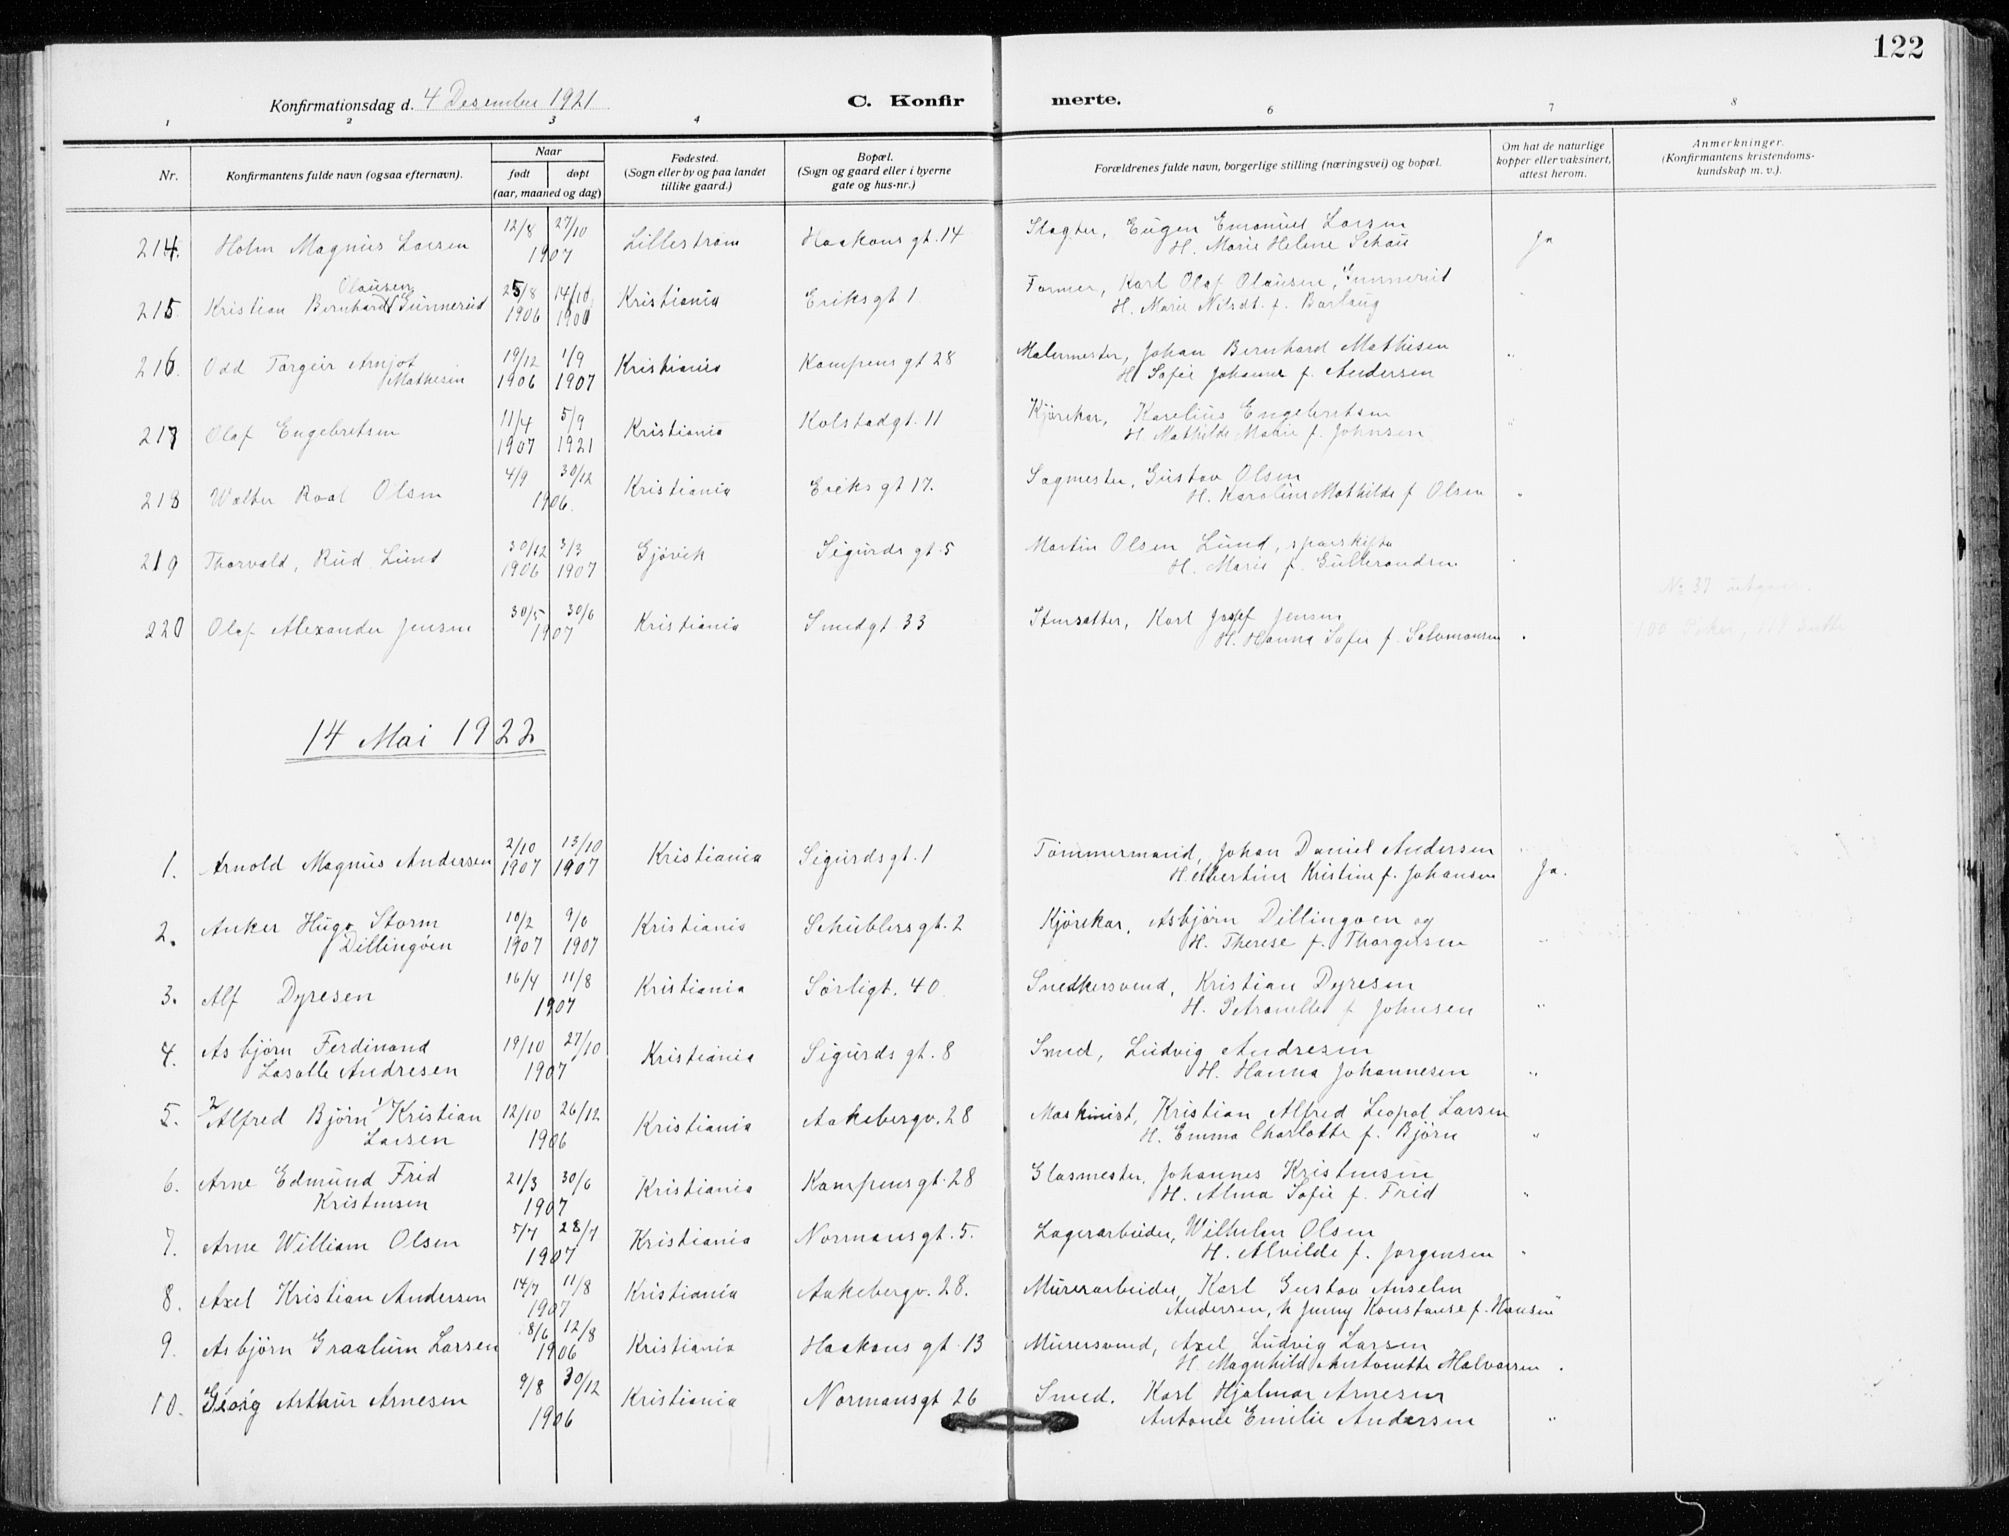 122
Konfirmationsdag d. 4 Desember 1921
C. Konfir merte.
1 2 3 4 6 7 8
Nr.
Konfirmantens fulde navn (ogsaa efternavn).
Naar
født døpt
(aar, maaned og dag)
Fødested.
(Sogn eller by og paa landet
tillike gaard.)
Bopæl.
(Sogn og gaard eller i byerne
gate og hus-nr.)
Forældrenes fulde navn, borgerlige stilling (næringsvei) og bopæl.
Om hat de naturlige
kopper eller vaksinert,
attest herom.
Anmerkninger.
(Konfirmantens kristendoms-
kundskap m. v.).
214. Holm Magnus Larsen 12/8 27/10 1907 Lillestrøm Haakons gt. 14 Slagter, Eugen Emanuel Larsen
H. Marie Helene Schau Ja
215 Kristian Bernhard Olausen Gunnerud 25/8 1906 14/10 1906 Kristiania Eriks gt 1 Former, Karl Olaf Olausen, Gunnerud
H. Marie Nilsdt. f. Barlaug
216. Odd Torgeir Arnjot
Mathisen 19/12 1906 1/9 1907 Kristiania Kampens gt 28 Malermester, Johan Bernhard Mathisen
H. Sofie Johanne f. Andersen "
217 Olaf Engebretsen 11/4 1907 5/9 1921 Kristiania Kolstadgt. 11 Kjørekar, Karelius Engebretsen
H. Mathilde Marie f. Johnsen "
218 Walter Roal Olsen 4/9 30/12 1906. Kristiania Eriks gt 17. Sagmester, Gustav Olsen
H. Karoline Mathilde f Olsen "
219 Thorvald, Rud Lund 30/12 1906 3/3 1907 Gjøvik Sigurds gt. 5 Martin Olsen Lund,
H. Marie f. Gulbrandsen
220 Olaf Alexander Jensen 30/5 30/6 1907 Kristiania Smedgt 33 Karl Josef Jensen
H. Hanna Sofie f. Salomonsen "
No 37 utgaar.
14 Mai 1922
1. Arnold Magnus Andersen 2/10 1907 13/10 1907 Kristiania Sigurdsgt. 1 Tømmermand, Johan Daniel Andersen
H. Albertine Kristine f. Johansen Ja.
2. Anker Hugo Storm
Dillingøen 10/2 1907 9/6 1907 Kristiania Schüblersgt. 2 Kjørekar, Asbjørn Dillingøen og
H. Therese f. Thorgersen "
3. Alf Dyresen 16/4 11/8 1907 Kristiania Sørligt. 40 Snedkersvend, Kristian Dyresen
H. Petronelle f Johnsen "
4. Asbjørn Ferdinand
Lasalle Andresen 19/10 27/10 1907 Kristiania Sigurds gt. 8 Smed, Ludvig Andresen
H. Hanna Johannesen "
5. 2/ Alfred Bjørn 1/ Kristian
Larsen 12/10 26/12 1906 Kristiania Aakebergv. 28 Maskinist, Kristian Alfred Leopol Larsen
H. Emma Charlotte f. Bjørn "
6. Arne Edmund Frid
Kristensen 21/3 30/6 1907 Kristiania Kampensgt. 28 Glasmester, Johannes Kristensen
H. Alma Sofie f. Frid "
7. Arne William Olsen 5/7 28/7 1907 Kristiania Normansgt. 5. Lagerarbeider, Wilhelm Olsen
H. Alvilde f. Jørgensen "
8. Axel Kristian Andersen 14/7 11/8 1907 Kristiania Aakebergv. 28. Murerarbeider, Karl Gustav Anselm
Andersen, h Jenny Konstanse f. Hansen "
9. Asbjørn Graalum Larsen 8/6 12/8 1906 Kristiania Haakons gt. 13 Murersvend, Axel Ludvig Larsen
H. Magnhild Antonette Halvorsen
10. Georg Arthur Arnesen 9/8 30/12 1906 Kristiania Normansgt 26 Smed. Karl Hjalmar Arnesen
Antonie Emilie Andersen "